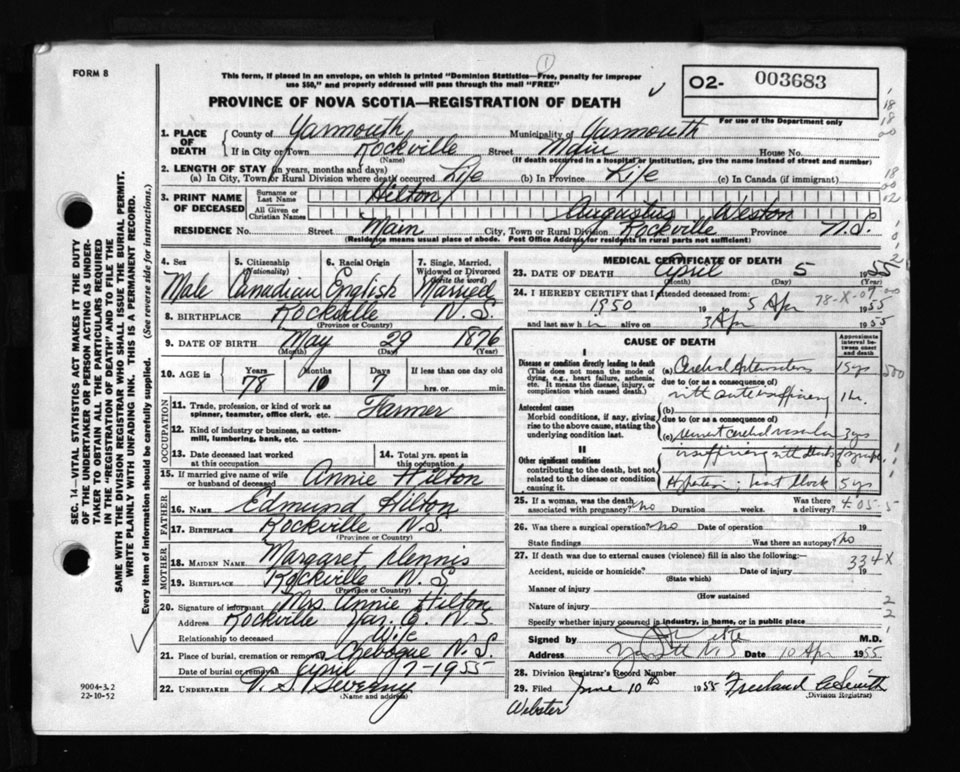 FORM 8
1
This form, if placed in an envelope, on which is printed "Dominion Statistics—Free, penalty for improper
use $50," and properly addressed will pass through the mail "FREE"
PROVINCE OF NOVA SCOTIA—REGISTRATION OF DEATH
02- 003683
For use of the Department only
1. PLACE OF DEATH County of Yarmouth Municipality of Yarmouth
If in City or Town Rockville Street Main House No.
(Name) (If death occurred in a hospital or institution, give the name instead of street and number)
2. LENGTH OF STAY (in years, months and days)
(a) In City, Town or Rural Division where death occurred Life (b) In Province Life (c) In Canada (if immigrant)
3. PRINT NAME OF DECEASED Surname or Last Name Hilton
All Given or Christian Names Augustus Weston
RESIDENCE No. Street Main City, Town or Rural Division Rockville Province N.S.
(Residence means usual place of abode. Post Office Address for residents in rural parts not sufficient)
4. Sex 5. Citizenship (Nationality) 6. Racial Origin 7. Single, Married, Widowed or Divorced (Write the word)
Male Canadian English Married
8. BIRTHPLACE Rockville N.S.
(Province or Country)
9. DATE OF BIRTH May 29 1876
(Month) (Day) (Year)
10. AGE is Years Months Days If less than one day old
78 10 7 hrs. or min.
OCCUPATION
11. Trade, profession, or kind of work as
spinner, teamster, office clerk, etc. Farmer
12. Kind of industry or business, as cotton-
mill, lumbering, bank, etc.
13. Date deceased last worked
at this occupation
14. Total yrs. spent in
this occupation
15. If married give name of wife
or husband of deceased Annie Hilton
FATHER
16. NAME Edmund Hilton
17. BIRTHPLACE Rockville N.S.
(Province or Country)
MOTHER
18. MAIDEN NAME Margaret Dennis
19. BIRTHPLACE Rockville N.S.
(Province or Country)
20. Signature of informant Mrs. Annie Hilton
Address Rockville Yar. Co. N.S.
Relationship to deceased Wife
21. Place of burial, cremation or removal Chebogue N.S.
Date of burial or removal April 7-1955
22. UNDERTAKER V. S. Sweeny
(Name and address)
MEDICAL CERTIFICATE OF DEATH
23. DATE OF DEATH April 5 1955
(Month) (Day)
24. I HEREBY CERTIFY that I attended deceased from: 78-X-07
1950 19 5 Apr 1955
and last saw h im alive on 5 Apr 1955
CAUSE OF DEATH
Approximate
interval be-
tween onset
and death
I
Disease or condition directly leading to death
(This does not mean the mode of
dying, e.g., heart failure, asthenia,
etc. It means the disease, injury, or
complication which caused death.)
(a) Cerebral 15 yrs
due to (or as a consequence of)
with 1 hr.
Antecedent causes
Morbid conditions, if any, giving
rise to the above cause, stating the
underlying condition last.
(b)
due to (or as a consequence of)
(c) cerebral vascular 3 yrs
II
Other significant conditions
contributing to the death, but not
related to the disease or condition
causing it.
heart block 5 yrs
25. If a woman, was the death
associated with pregnancy? no Duration weeks. Was there
a delivery? 4.05.5
26. Was there a surgical operation? no Date of operation 19
State findings Was there an autopsy? no
27. If death was due to external causes (violence) fill in also the following:—
334X
Accident, suicide or homicide? Date of injury 19
(State which)
Manner of injury
(How sustained)
Nature of injury
Specify whether injury occurred in industry, in home, or in public place
Signed by M.D.
Address N.S Date 10 Apr 1955
28. Division Registrar's Record Number
29. Filed June 10th 1955 Freeland
(Division Registrar)
Webster
9004-3.2
22-10-52
SEC. 14—VITAL STATISTICS ACT MAKES IT THE DUTY
OF THE UNDERTAKER OR PERSON ACTING AS UNDER-
TAKER TO OBTAIN ALL THE PARTICULARS REQUIRED
IN THE "REGISTRATION OF DEATH" AND TO FILE THE
SAME WITH THE DIVISION REGISTRAR WHO SHALL ISSUE THE BURIAL PERMIT.
WRITE PLAINLY WITH UNFADING INK. THIS IS A PERMANENT RECORD.
Every item of information should be carefully supplied. (See reverse side for instructions.)